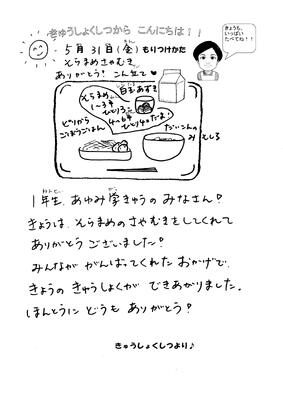 きゅうしょくしつから こんにちは！！
きょうも、
いっぱい
たべてね！！
5月31日(金) もりつけかた
そらまめさやむき
ありがとう！こん立て
そらまめ
1～3年
ひとり3こ
4～6年
ひとり4こだよ！
白玉あずき
とりから
ごぼうごはん
だいこんの
みそしる
1年生、あゆみ学きゅうの みなさん！
きょうは、そらまめのさやむきをしてくれて
ありがとうございました！
みんなが がんばってくれた おかげで、
きょうの きゅうしょくが できあがりました。
ほんとうに どうも ありがとう！
きゅうしょくしつより♪